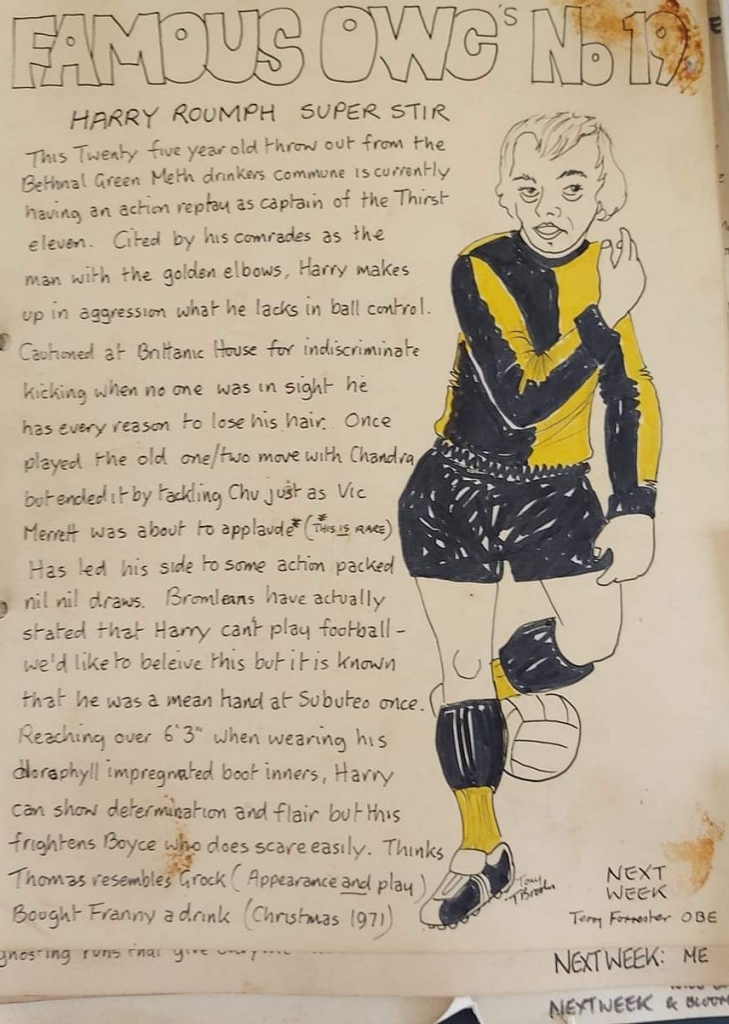 FAMOUS OWC's No 19
HARRY ROUMPH SUPER STIR
This Twenty five year old throw out from the
Bethnal Green Meth drinkers commune is currently
having an action replay as captain of the Thirst
eleven. Cited by his comrades as the
man with the golden elbows, Harry makes
up in aggression what he lacks in ball control.
Cautioned at Brittanic House for indiscriminate
kicking when no one was in sight he
has every reason to lose his hair. Once
played the old one/two move with Chandra
but ended it by tackling Chu just as Vic
Merrett was about to applaude* (*THIS IS RARE)
Has led his side to some action packed
nil nil draws. Bromleans have actually
stated that Harry can't play football -
we'd like to beleive this but it is known
that he was a mean hand at Subuteo once.
Reaching over 6'3" when wearing his
chloraphyll impregnated boot inners, Harry
can show determination and flair but this
frightens Boyce who does scare easily. Thinks
Thomas resembles Grock (Appearance and play)
Bought Franny a drink (Christmas 1971)
Tony
T Brooks
NEXT
WEEK
Terry Forrester OBE
NEXT WEEK: ME
NEXT WEEK &